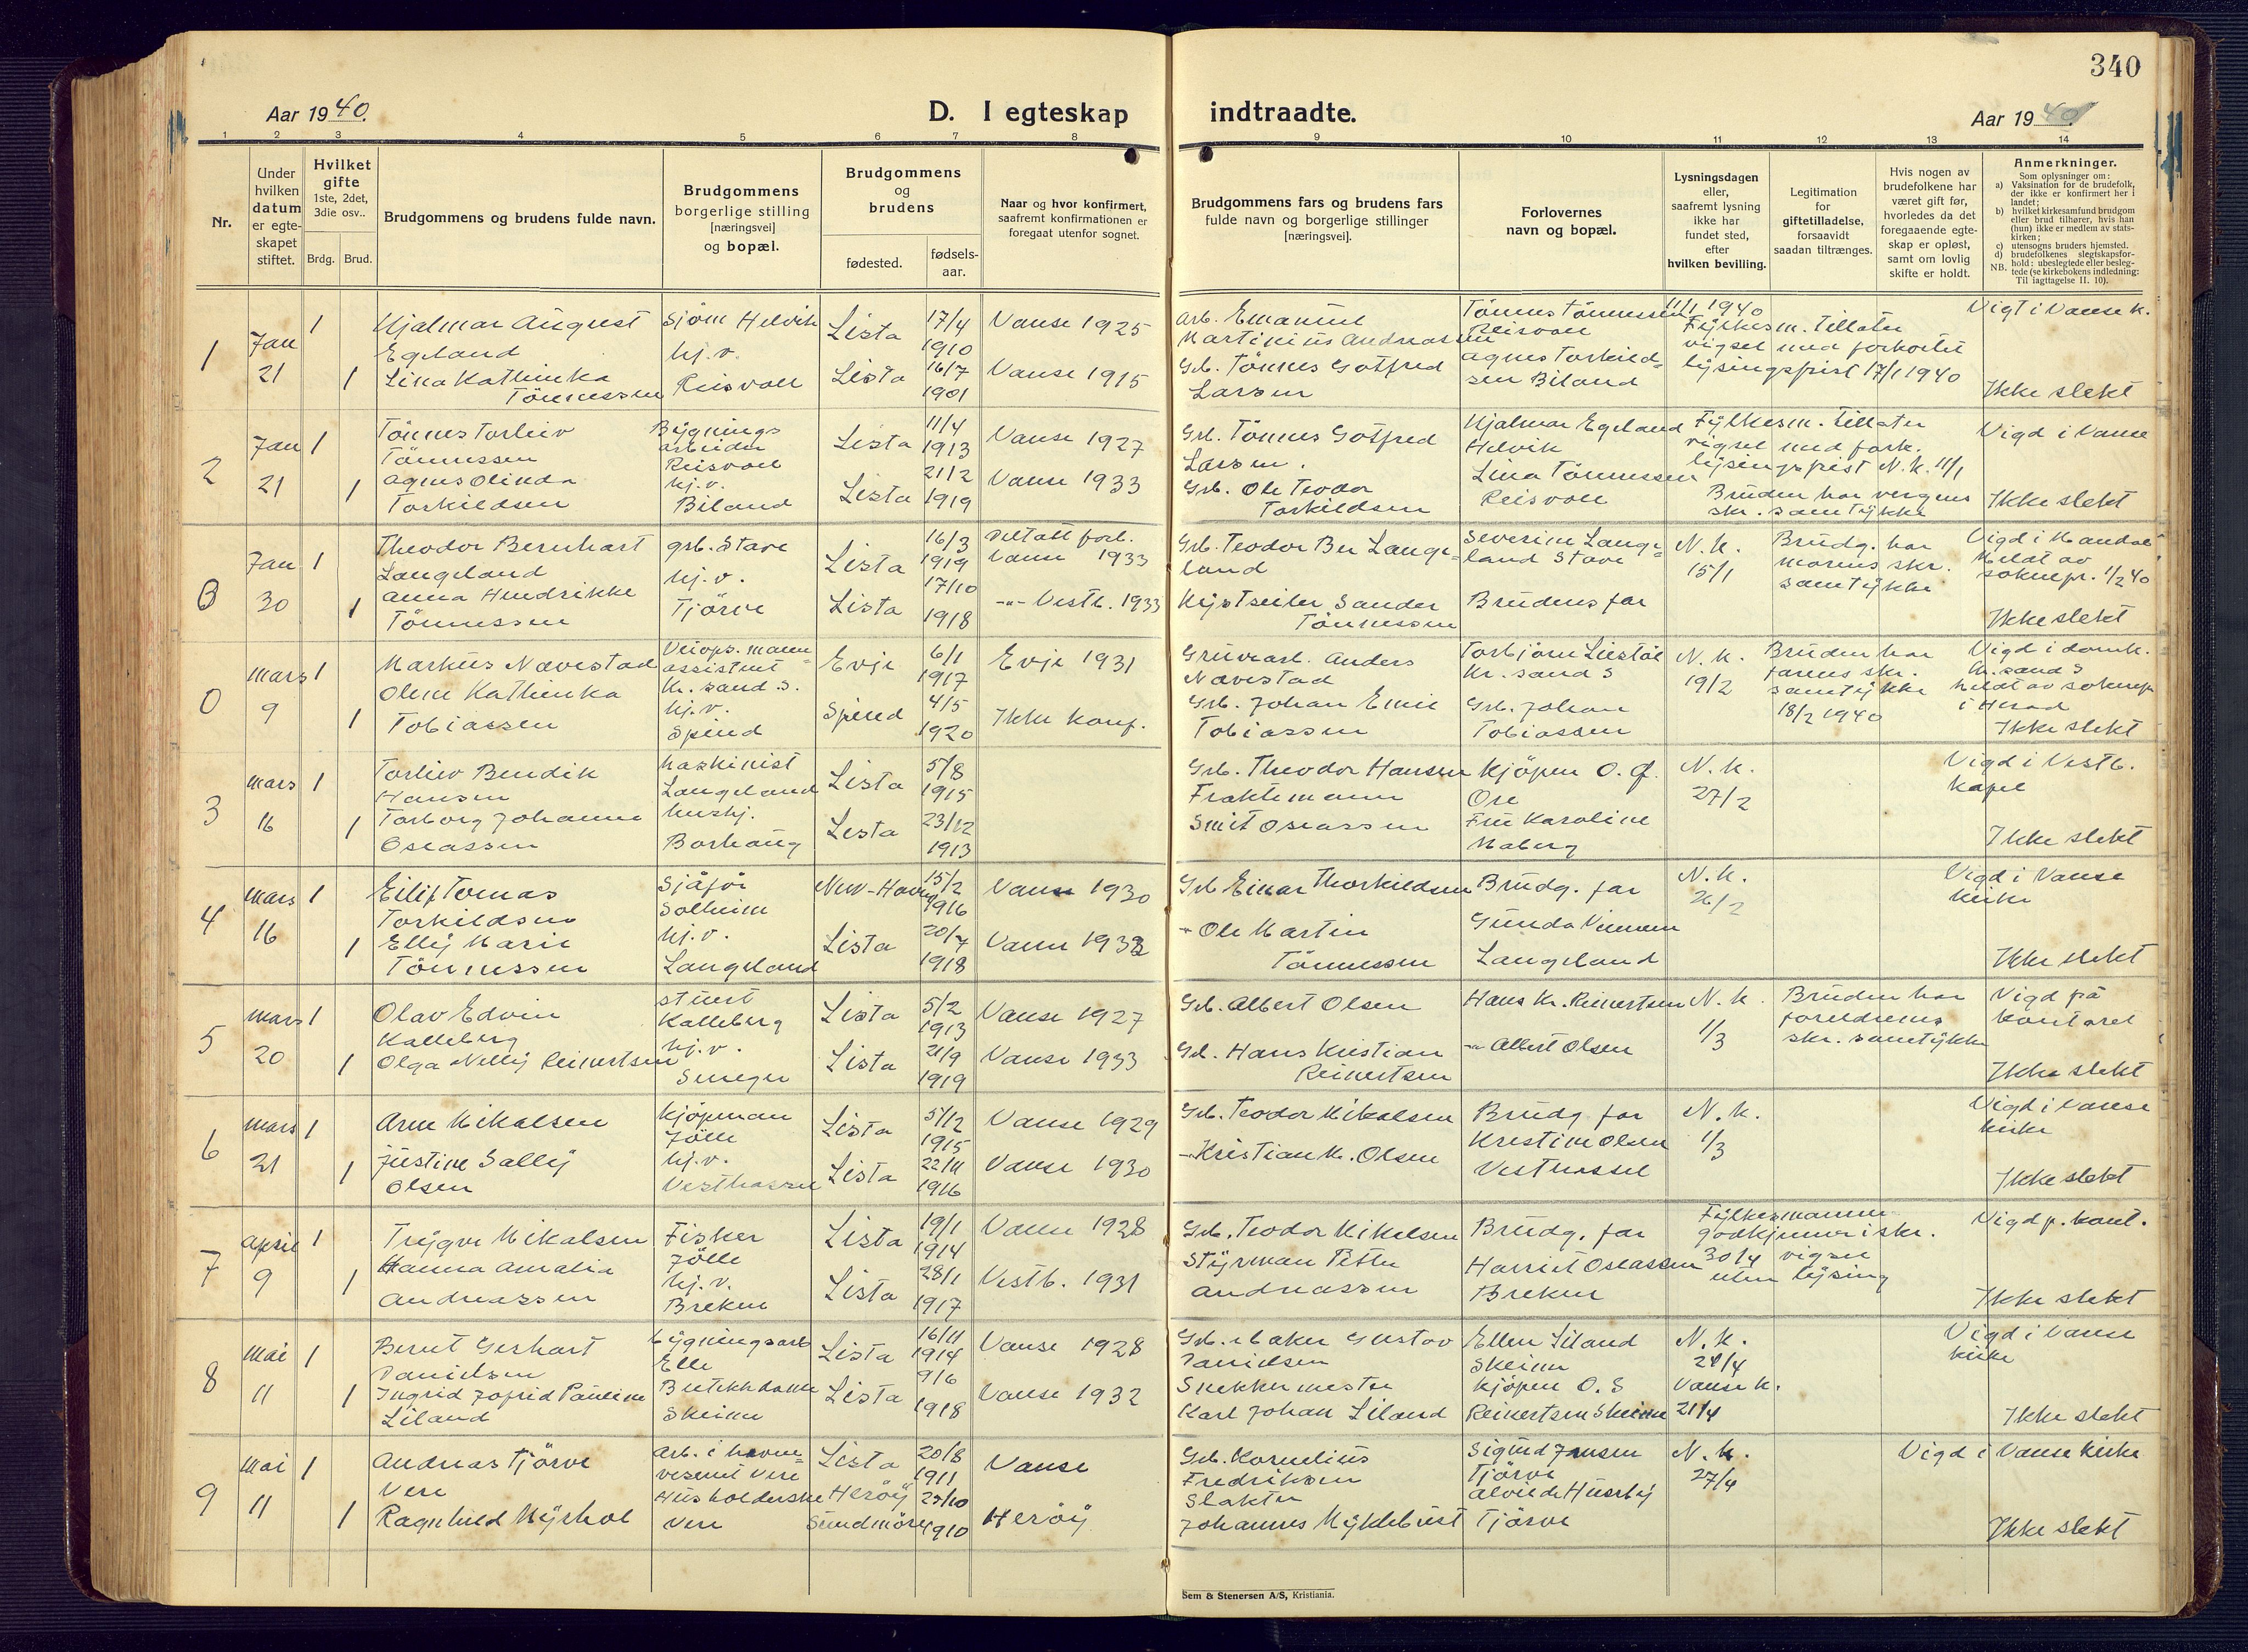 340
Aar 1940.
D. I egteskap indtraadte.
Aar 1940.
1 2 3 4 5 6 7 8 9 10 11 12 13 14
Nr.
Under hvilken datum er egteskapet stiftet.
Hvilket gifte 1ste, 2det, 3die osv..
Brdg. Brud.
Brudgommens og brudens fulde navn.
Brudgommens borgerlige stilling [næringsvei] og bopæl.
Brudgommens og brudens
fødested.
fødselsaar.
Naar og hvor konfirmert, saafremt konfirmationen er foregaat utenfor sognet.
Brudgommens fars og brudens fars fulde navn og borgerlige stillinger [næringsvei].
Forlovernes navn og bopæl.
Lysningsdagen eller, saafremt lysning ikke har fundet sted, efter hvilken bevilling.
Legitimation for giftetilladelse, forsaavidt saadan tiltrænges.
Hvis nogen av brudefolkene har været gift før, hvorledes da det foregaaende egteskap er opløst, samt om lovlig skifte er holdt.
Anmerkninger.
Som oplysninger om:
a) Vaksination for de brudefolk, der ikke er konfirmert her i landet;
b) hvilket kirkesamfund brudgom eller brud tilhører, hvis han (hun) ikke er medlem av statskirken;
c) utensogns bruders hjemsted.
d) brudefolkenes slegtskapsforhold: ubeslegtede eller beslegtede (se kirkebokens indledning: Til iagttagelse II. 10).
NB.
1 Jan 21 1 Hjalmar August Egeland Sjøm Helvik Lista 17/4 1910 Vanse 1925 Arb. Emanuel Martinius Andreassen Tönnes Tönnessen Reisvoll 11/1 1940 Fylkesm. tillater vigsel med forkortet lysingsfrist 17/1 1940 Vigt i Vanse k.
1 Lina Kathinka Tönnessen hj.v. Reisvoll Lista 16/7 1901 Vanse 1915 Grb. Tönnes Gotfred Larsen Agnes Torkildsen Biland Ikke slekt
2 Jan 21 1 Tönnes Torleiv Tönnessen Bygnings arbeider Reisvoll Lista 11/4 1913 Vanse 1927 Grb. Tönnes Gotfred Larsen. Hjalmar Egeland Helvik Fylkesm. tillater vigsel med fork. lysingsfrist N.K. 11/1 Vigd i Vanse
1 Agnes Olinda Torkildsen hj.v. Biland Lista 21/2 1919 Vanse 1933 Grb. Ole Teodor Torkildsen Lina Tönnessen Reisvoll Bruden har vergens skr. samtykke Ikke slekt
0 Jan 30 1 Theodor Bernhart Langeland grb. Stave Lista 16/3 1919 Deltatt forb. Vanse 1933 Grb. Teodor Ber Langeland Severine Langeland Stave N.K. 15/1 Brudg. har morens skr. samtykke Vigd i Mandal Meldt av soknepr. 1/2 40
1 Anna Hendrikke Tönnessen hj.v. Tjörve Lista 17/10 1918 -"- Vestb. 1933 Kystseiler Sander Tönnessen Brudens far Ikke slekt
0 Mars 9 1 Markus Nævestad Veiops.mannassistent Kr.sand S. Evje 6/1 1917 Evje 1931 Gruvearb. Anders Nævestad Torbjörn Liestöl Kr.sand S N.K. 19/2 Bruden har farens skr. samtykke 18/2 1940 Vigd i domk. Kr.sand S meldt av soknepr i Herad
1 Olene Kathinka Tobiassen hj.v. Spind Spind 4/5 1920 Ikke konf. Grb. Johan Emil Tobiassen Grb. Johan Tobiassen Ikke slekt
3 Mars 16 1 Torleiv Bendik Hansen Maskinist Langeland Lista 5/8 1915 Grb. Theodor Hansen Kjöpm O. G. Ore N.K. 27/2 Vigd i Vestb. Kapel
1 Torborg Johanne Oseassen hushj. Borhaug Lista 23/12 1913 Fraktemann Smit Oseassen Fru Karoline Maberg Ikke slekt
4 Mars 16 1 Eilif Tomas Torkildsen Sjåför Solheim New-Haven 15/2 1916 Vanse 1930 Grb Einar Thorkildsen Brudg. far N.K. 26/2 Vigd i Vanse kirke
1 Elly Marie Tönnessen hj.v. Langeland Lista 20/7 1918 Vanse 1933 -"- Ole Martin Tönnessen Gunda Langeland Ikke slekt
5 Mars 20 1 Olav Edvin Kalleberg stuert Kalleberg Lista 5/2 1913 Vanse 1927 Grb. Albert Olsen Hans Kr. Reinertsen N.K. 1/3 Bruden har foreldrenes skr. samtykke Vigd på kontoret
1 Olga Nelly Reinertsen hj.v. Lista 21/9 1919 Vanse 1933 Grb. Hans Kristian Reinertsen -"- Albert Olsen Ikke slekt
6 Mars 21 1 Arne Mikalsen Kjöpman Jölle Lista 5/12 1915 Vanse 1929 Grb. Teodor Mikalsen Brudg far N.K. 1/3 Vigd i Vanse kirke
1 Justine Sally Olsen hj.v. Vesthassel Lista 22/11 1916 Vanse 1930 -"- Kristian M. Olsen Kristine Olsen Vesthassel Ikke slekt
7 April 9 1 Trygve Mikalsen Fisker Jölle Lista 19/1 1914 Vanse 1928 Grb. Teodor Mikalsen Brudg. far Fylkesmannen godkjenner i skr. 30/4 vigsel uten lysing Vigd p. kont.
1 Hanna Amalia Andreassen hj.v. Brekne Lista 28/1 1917 Vestb. 1931 Styrman Petter Andreassen Harriet Oseassen Brekne Ikke slekt
8 Mai 11 1 Bernt Gerhart Danielsen bygningsarb Elle Lista 16/11 1914 Vanse 1928 Grb. Maker Gustav Danielsen Ellen Liland Skeime N.K. 21/4 Vigd i Vanse kirke
1 Ingrid Jofrid Pauline Liland Butikkdame Skeime Lista 9/6 1918 Vanse 1932 Snekkermester Karl Johan Liland Kjöpm O. S Reinertsen Skeime Vanse k. 21/4 Ikke slekt
9 Mai 11 1 Andreas Tjörve Vere Arb. i havnevesenet Vere Lista 20/8 1911 Vanse Grb. Kornelius Fredriksen Sigurd Jansen Tjörve N.K. 27/4 Vigd i Vanse Kirke
1 Ragnhild Myrhol Husholderske Vere Heröy Sundmöre 29/10 1910 Heröy Slakter Johannes Myklebust Alvilde Huseby Tjörve Ikke slekt
Sem & Stenersen A/S, Kristiania.